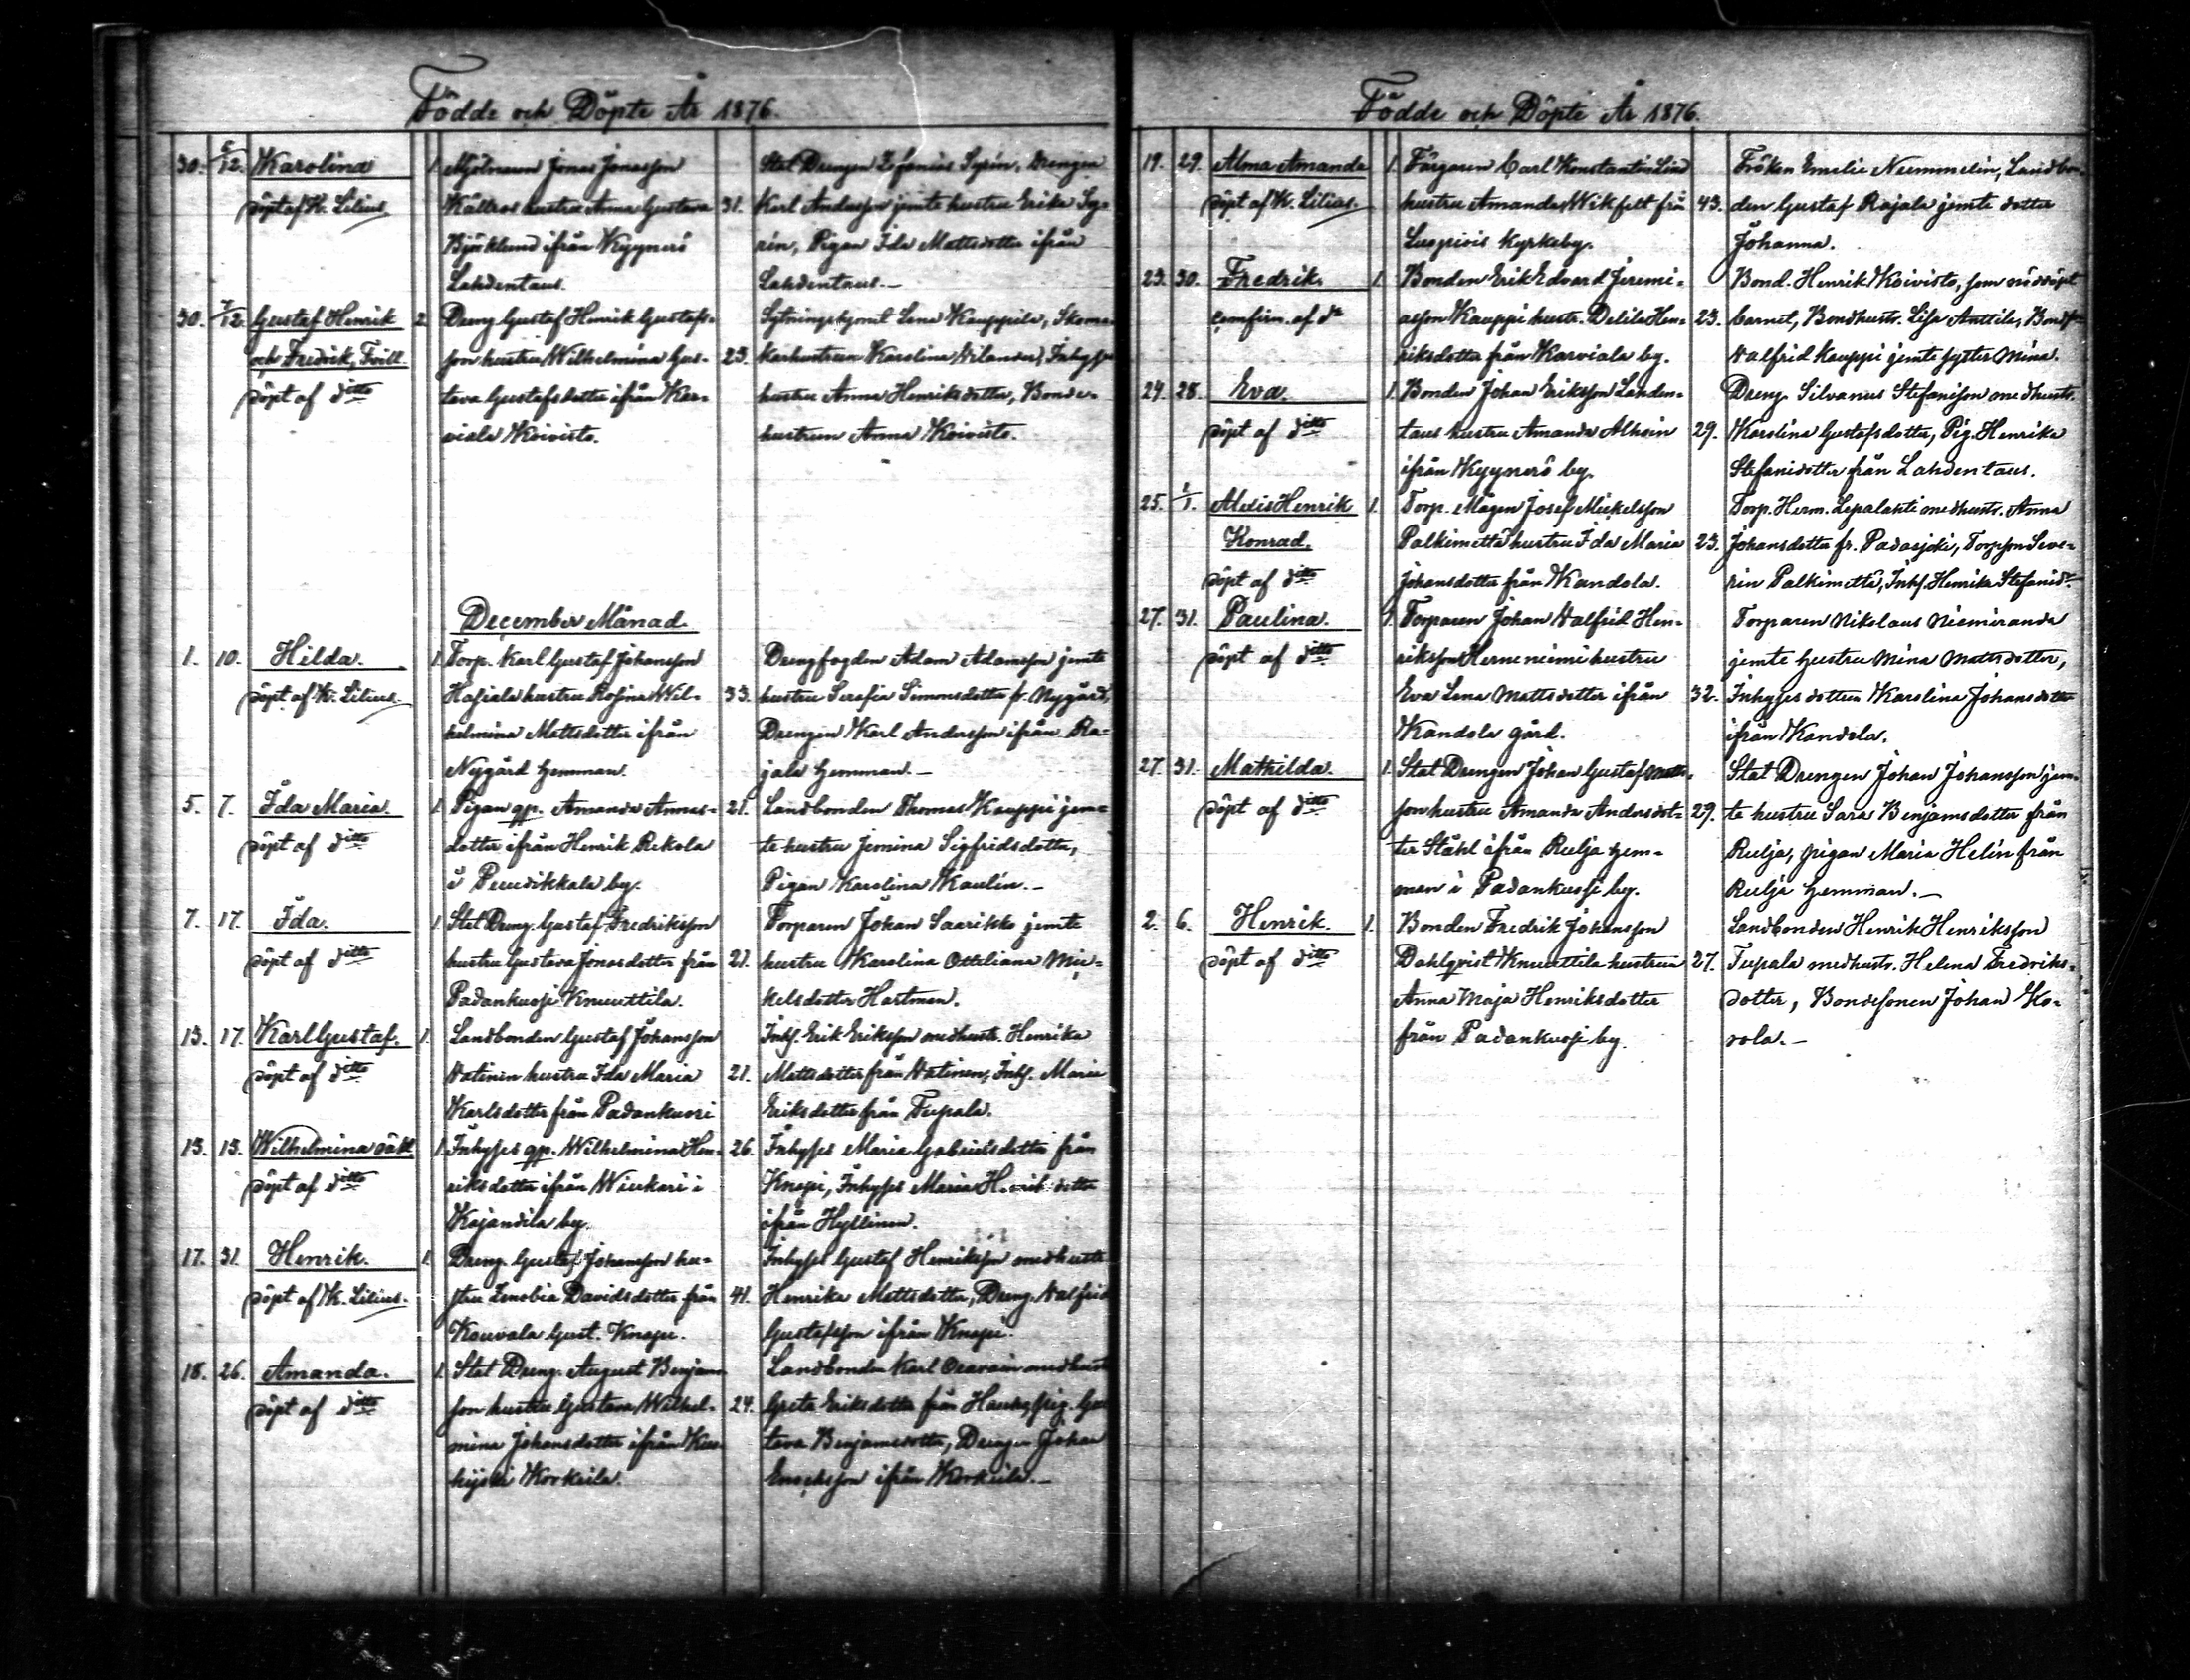 Födde och Döpte År 1876.
30. 5/12. Karolina 1. Mjölnaren Jonas Jonasson Stat Drengen Zefanias Syrén, Drengen
döpt af K. Lilius hustru Anna Gustava 31. Karl Andersson jemte hustru Erika Sy-
Björklund ifrån Kyynerö rén, Pigan Ida Mattsdotter ifrån
Lahdentaus. Lahdentaus.—
30. 7/12. Gustaf Henrik 2. Dreng Gustaf Henrik Gustafs- Sytningshjonet Lena Kauppila, Skoma-
och Fredrik, Tvill. son hustru Wilhelmina Gus- 23. karhustrun Karolina Vilander, Inhyses
döpt af ditto tava Gustafsdotter ifrån Kar- hustru Anna Henriksdotter, Bonde-
viala Koivisto. hustrun Anna Koivisto.
December Månad.
1. 10. Hilda. 1. Torp. Karl Gustaf Johansson Drengfogden Adam Adamsson jemte
döpt af K. Lilius. hustru Rosina Wil- 33. hustru Serafia Simonsdotter fr. Nygård,
helmina Mattsdotter ifrån Drengen Karl Andersson ifrån Ra-
Nygård hemman. jala hemman.—
5. 7. Ida Maria. 1. Pigan qp. Amanda Annas- 21. Landbonden Thomas Kauppi jem-
döpt af ditto dotter ifrån Henrik Rekola te hustru Jemina Sigfridsdotter,
i by. Pigan Karolina Kaulin.—
7. 17. Ida. 1. Stat Dreng. Gustaf Fredriksson Torparen Johan Saarikko jemte
döpt af ditto hustru Gustava Jonasdotter från 21. hustru Karolina Otteliana Mic-
Padankuosi Knuuttila. kelsdotter Hartman.
13. 17. Karl Gustaf. 1. Landbonden Gustaf Johansson Inhs. Erik Eriksson med hustr. Henrika
döpt af ditto Vatinen hustru Ida Maria 21. Mattsdotter från Vatinen, Inhs. Maria
Karlsdotter från Padankuosi Eriksdotter från Tupala.
13. 13. Wilhelmina oäkt. 1. Inhyses qp. Wilhelmina Hen- 26. Inhyses Maria Gabrielsdotter från
döpt af ditto riksdotter ifrån i Inhyses Maria Henriksdotter
Kajandila by. ifrån Hyllinen.
17. 31. Henrik. 1. Dreng. Gustaf Johansson hu- Inhyses Gustaf Henriksson med hustr.
döpt af K. Lilius. stru Zenobia Davidsdotter från 41. Henrika Mattsdotter, Dreng. Valfrid
Kouvala Gust. Gustafsson ifrån
18. 26. Amanda. 1. Stat Dreng. August Benjams- Landbonden Karl Oravain med hustr.
döpt af ditto son hustru Gustava Wilhel- 24. Greta Eriksdotter från Pig. Gus
mina Johansdotter ifrån tava Benjamsdotter, Drengen Johan
Korkeila. ifrån Korkeila.—
Födde och Döpte År 1876.
19. 29. Alma Amanda 1. Färgaren Carl Konstantin Lind Fröken Emelie Nummelin, Landbon-
döpt af K. Lilius. hustru Amanda Wikfelt från 43. den Gustaf Rajala jemte dotter
Luopiois Kyrkoby. Johanna.
23. 30. Fredrik. 1. Bonden Erik Edvard Jeremi- Bond. Henrik Koivisto, som nöddöpt
comfirm. af do asson Kauppi hustr. Delila Hen- 23. barnet, Bondhustr. Lisa Anttila, Bonds.
riksdotter från Karviala by. Valfrid Kauppi jemte syster Mina.
24. 28. Eva. 1. Bonden Johan Eriksson Lahden- Dreng. Silvanus Stefansson med hustr.
döpt af ditto taus hustru Amanda Alhoin 29. Karolina Gustafsdotter, Pig. Henrika
ifrån Kyynerö by. Stefansdotter från Lahdentaus.
25. 2/1. Alexis Henrik 1. Torp. Mågen Josef Mickelsson Torp. Herm. Lepalahti med hustr. Anna
Konrad. Palkimetta hustru Ida Maria 23. Johansdotter fr. Padasjoki, Torpson Seve-
döpt af ditto Johansdotter från Kandola. rin Palkimetta, Inhs. Henrika Stefansdr.
27. 31. Paulina. 1. Torparen Johan Valfrid Hen- Torparen Nikolaus Nieminranda
döpt af ditto riksson Herneniemi hustru jemte hustru Mina Mattsdotter,
Eva Lena Mattsdotter ifrån 32. Inhyses dottren Karolina Johansdotter
Kandola gård. ifrån Kandola.
27. 31. Mathilda. 1. Stat Drengen Johan Gustaf Matts- Stat Drengen Johan Johansson jem-
döpt af ditto son hustru Amanda Andersdot- 29. te hustru Sara Benjamsdotter från
ter Ståhl ifrån Rulja hem- Rulja, pigan Maria Helin från
man i Padankuosi by. Rulja hemman.—
2. 6. Henrik. 1. Bonden Fredrik Johansson Landbonden Henrik Henriksson
döpt af ditto Dahlqvist Knuuttila hustrun 27. Tupala med hustr. Helena Fredriks-
Anna Maja Henriksdotter dotter, Bondesonen Johan Ko-
från Padankuosi by. rola.—